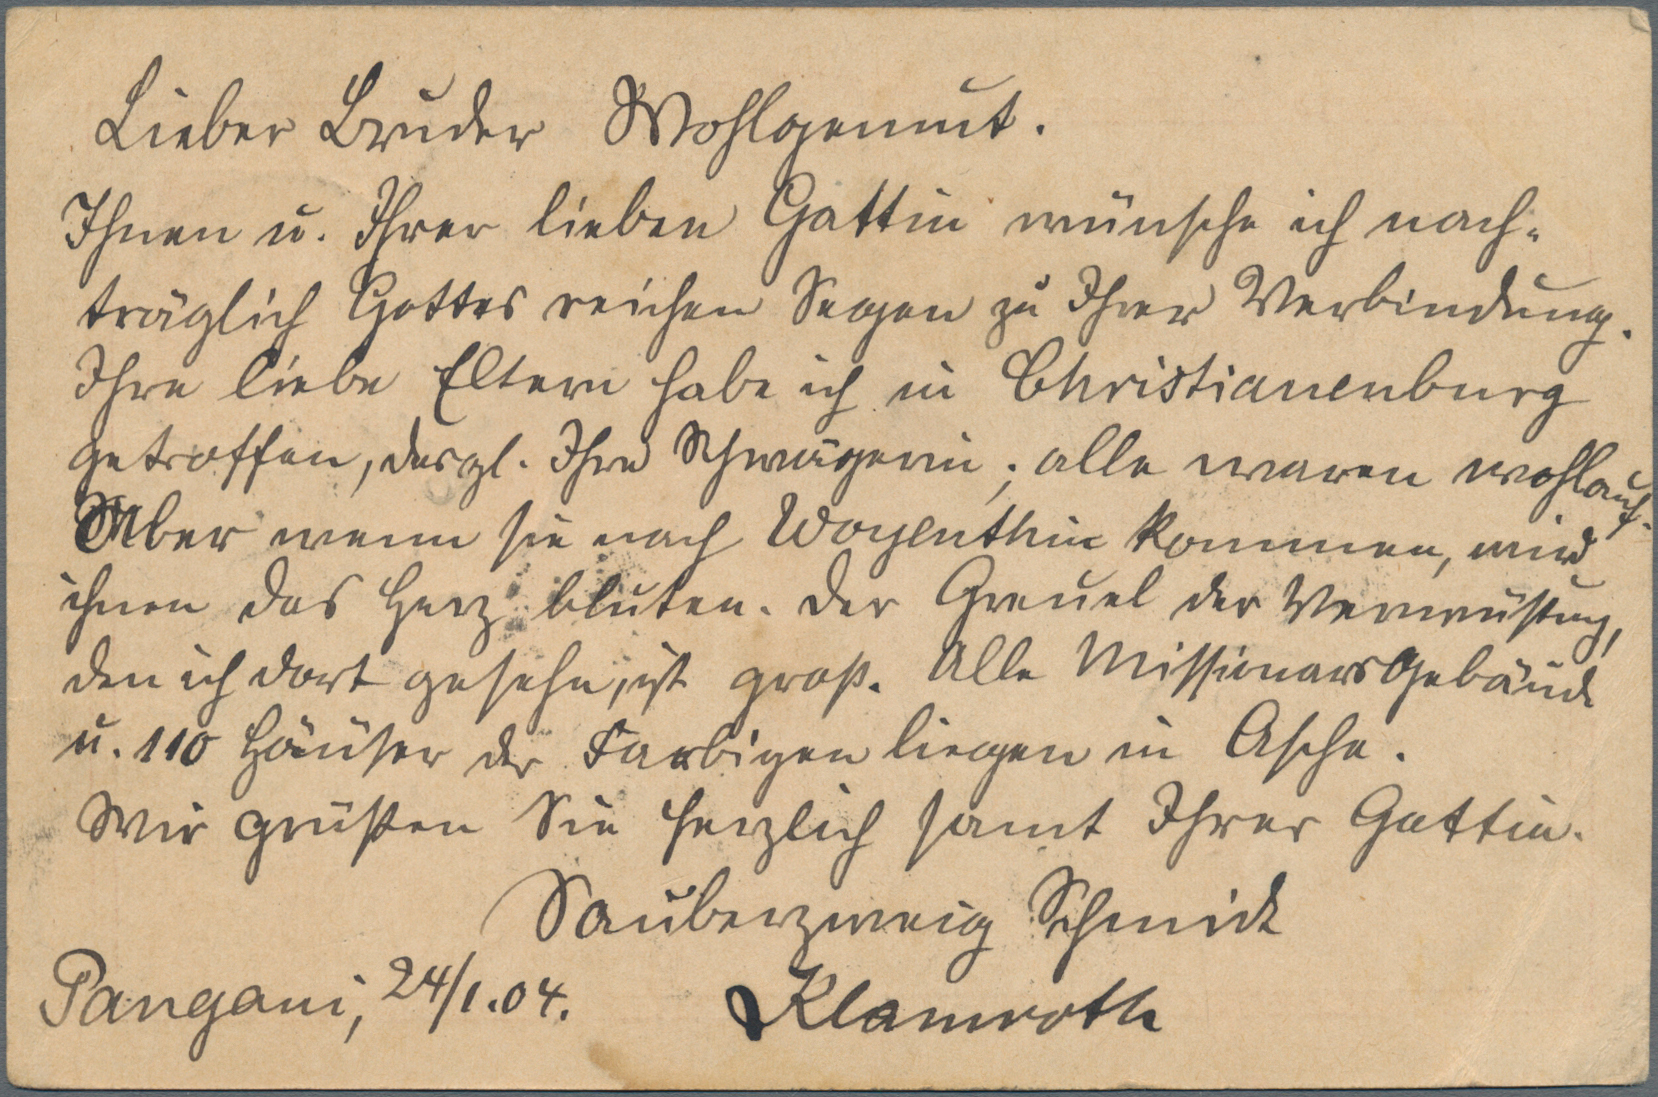 Lieber Bruder Wohlgemut.
Ihnen u. Ihrer lieben Gattin wünsche ich nach-
träglich Gottes reichen Segen zu Ihrer Verbindung.
Ihre liebe Eltern habe ich in Christianenburg
getroffen, desgl. Ihre Schwägerin; alle waren wohlauf.
Aber wenn sie nach Woyenthin kommen, wird
ihnen das Herz bluten. Der Greuel der Verwüstung,
den ich dort gesehn, ist groß. Alle Missionarsgebäude
u. 110 Häuser der Farbigen liegen in Asche.
Wir grüßen Sie herzlich samt Ihrer Gattin.
Sauberzweig Schmidt
Pangani, 24/1.04.
Klamroth